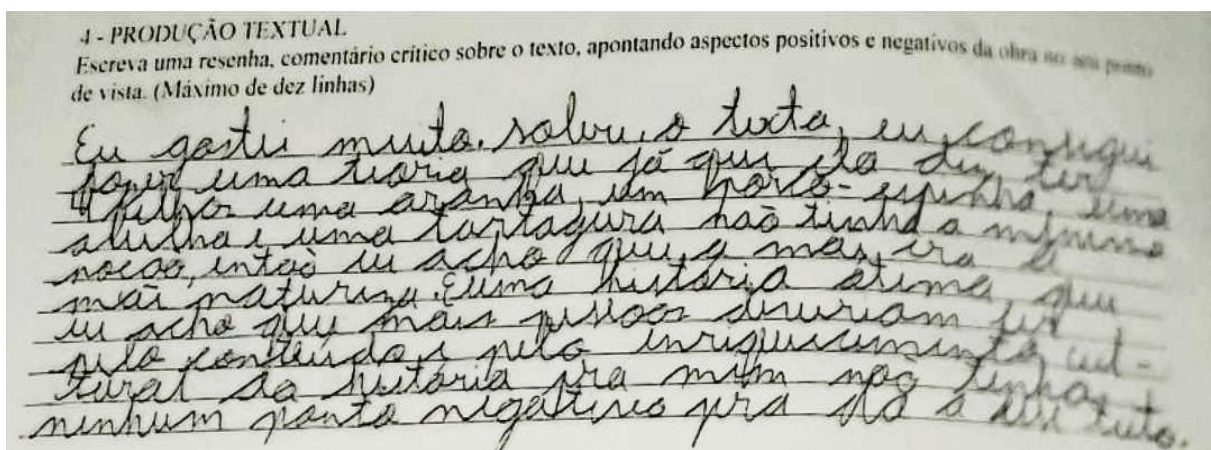 4 - PRODUÇÃO TEXTUAL
Escreva uma resenha, comentário crítico sobre o texto, apontando aspectos positivos e negativos da obra no seu ponto
de vista. (Máximo de dez linhas)
Eu gostei muito. sobre o texto, eu consegui
fazer uma teoria que já que ela diz ter
filhos uma aranha, um porco-espinho, uma
abelha e uma tartagura não tinha a mínima
nocão, então eu acho que a mãe era a
mãi natureza. É uma história ótima, que
eu acho que mais pessoas deveriam ler
pelo conteúdo e pelo enriquecimento cul-
tural da história pra mim nao tinha
nenhum ponto negativo pra da a